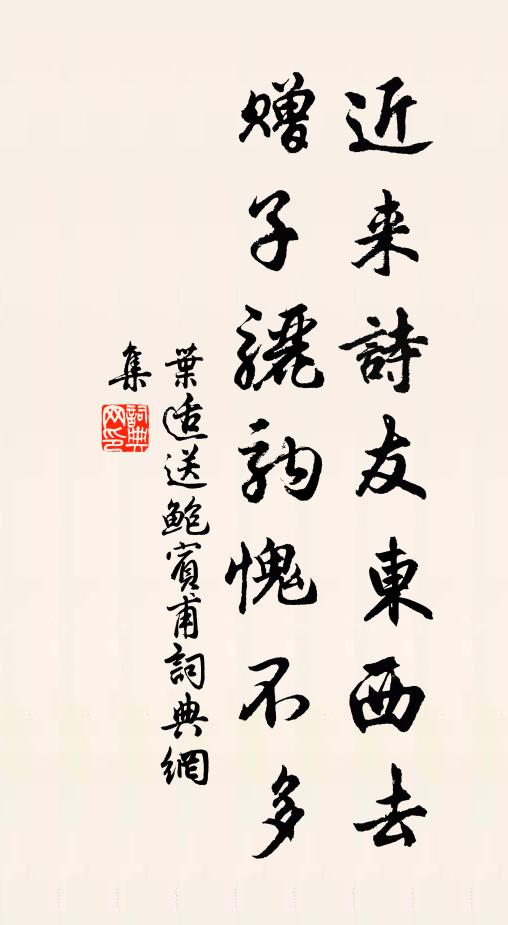 近来詩友東西去
贈子驪駒愧不多
葉适送鮑賓甫詞典網
集
詞典网印